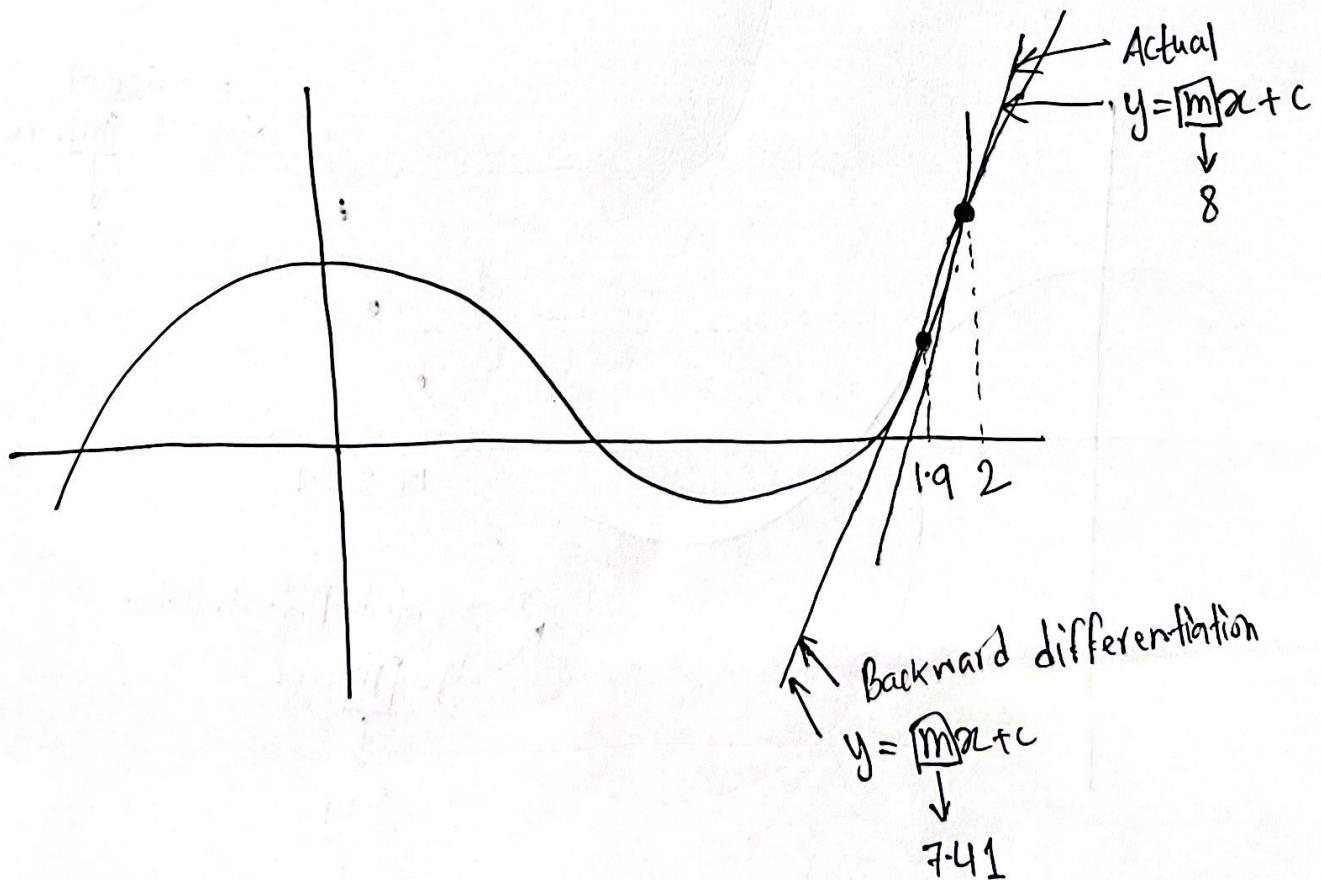 Actual
y = mx + c
↓
8
1.9 2
Backward differentiation
y = mx + c
↓
7.41